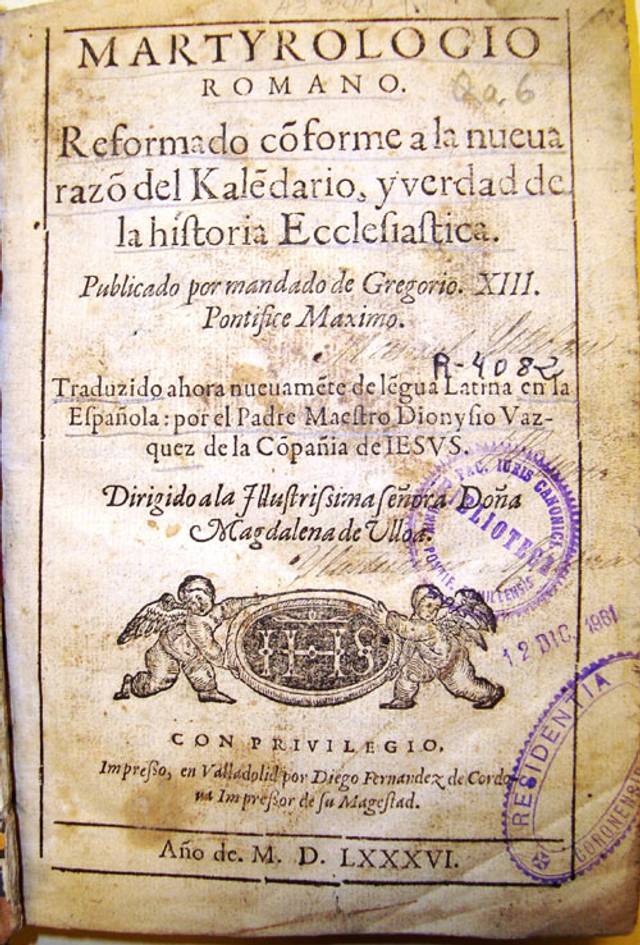 MARTYROLOGIO
ROMANO.
Reformado cõforme a la nueua
razõ del Kalẽdario, y verdad de
la hiſtoria Eccleſiaſtica.
Publicado por mandado de Gregorio. XIII.
Pontifice Maximo.
R-4082
Traduzido ahora nueuamẽte de lẽgua Latina en la
Eſpañola: por el Padre Maeſtro Dionyſio Vaz-
quez de la Cõpañia de IESVS.
Dirigido a la Illuſtriſsima ſeñora Doña
Magdalena de Vlloa.
FAC. IURIS CANONICI
BIBLIOTECA
IHS
12 DIC. 1961
CON PRIVILEGIO,
Impreſſo, en Valladolid por Diego Fernandez de Cordo
ua Impreſſor de ſu Mageſtad.
RESIDENTIA
Año de. M. D. LXXXVI.